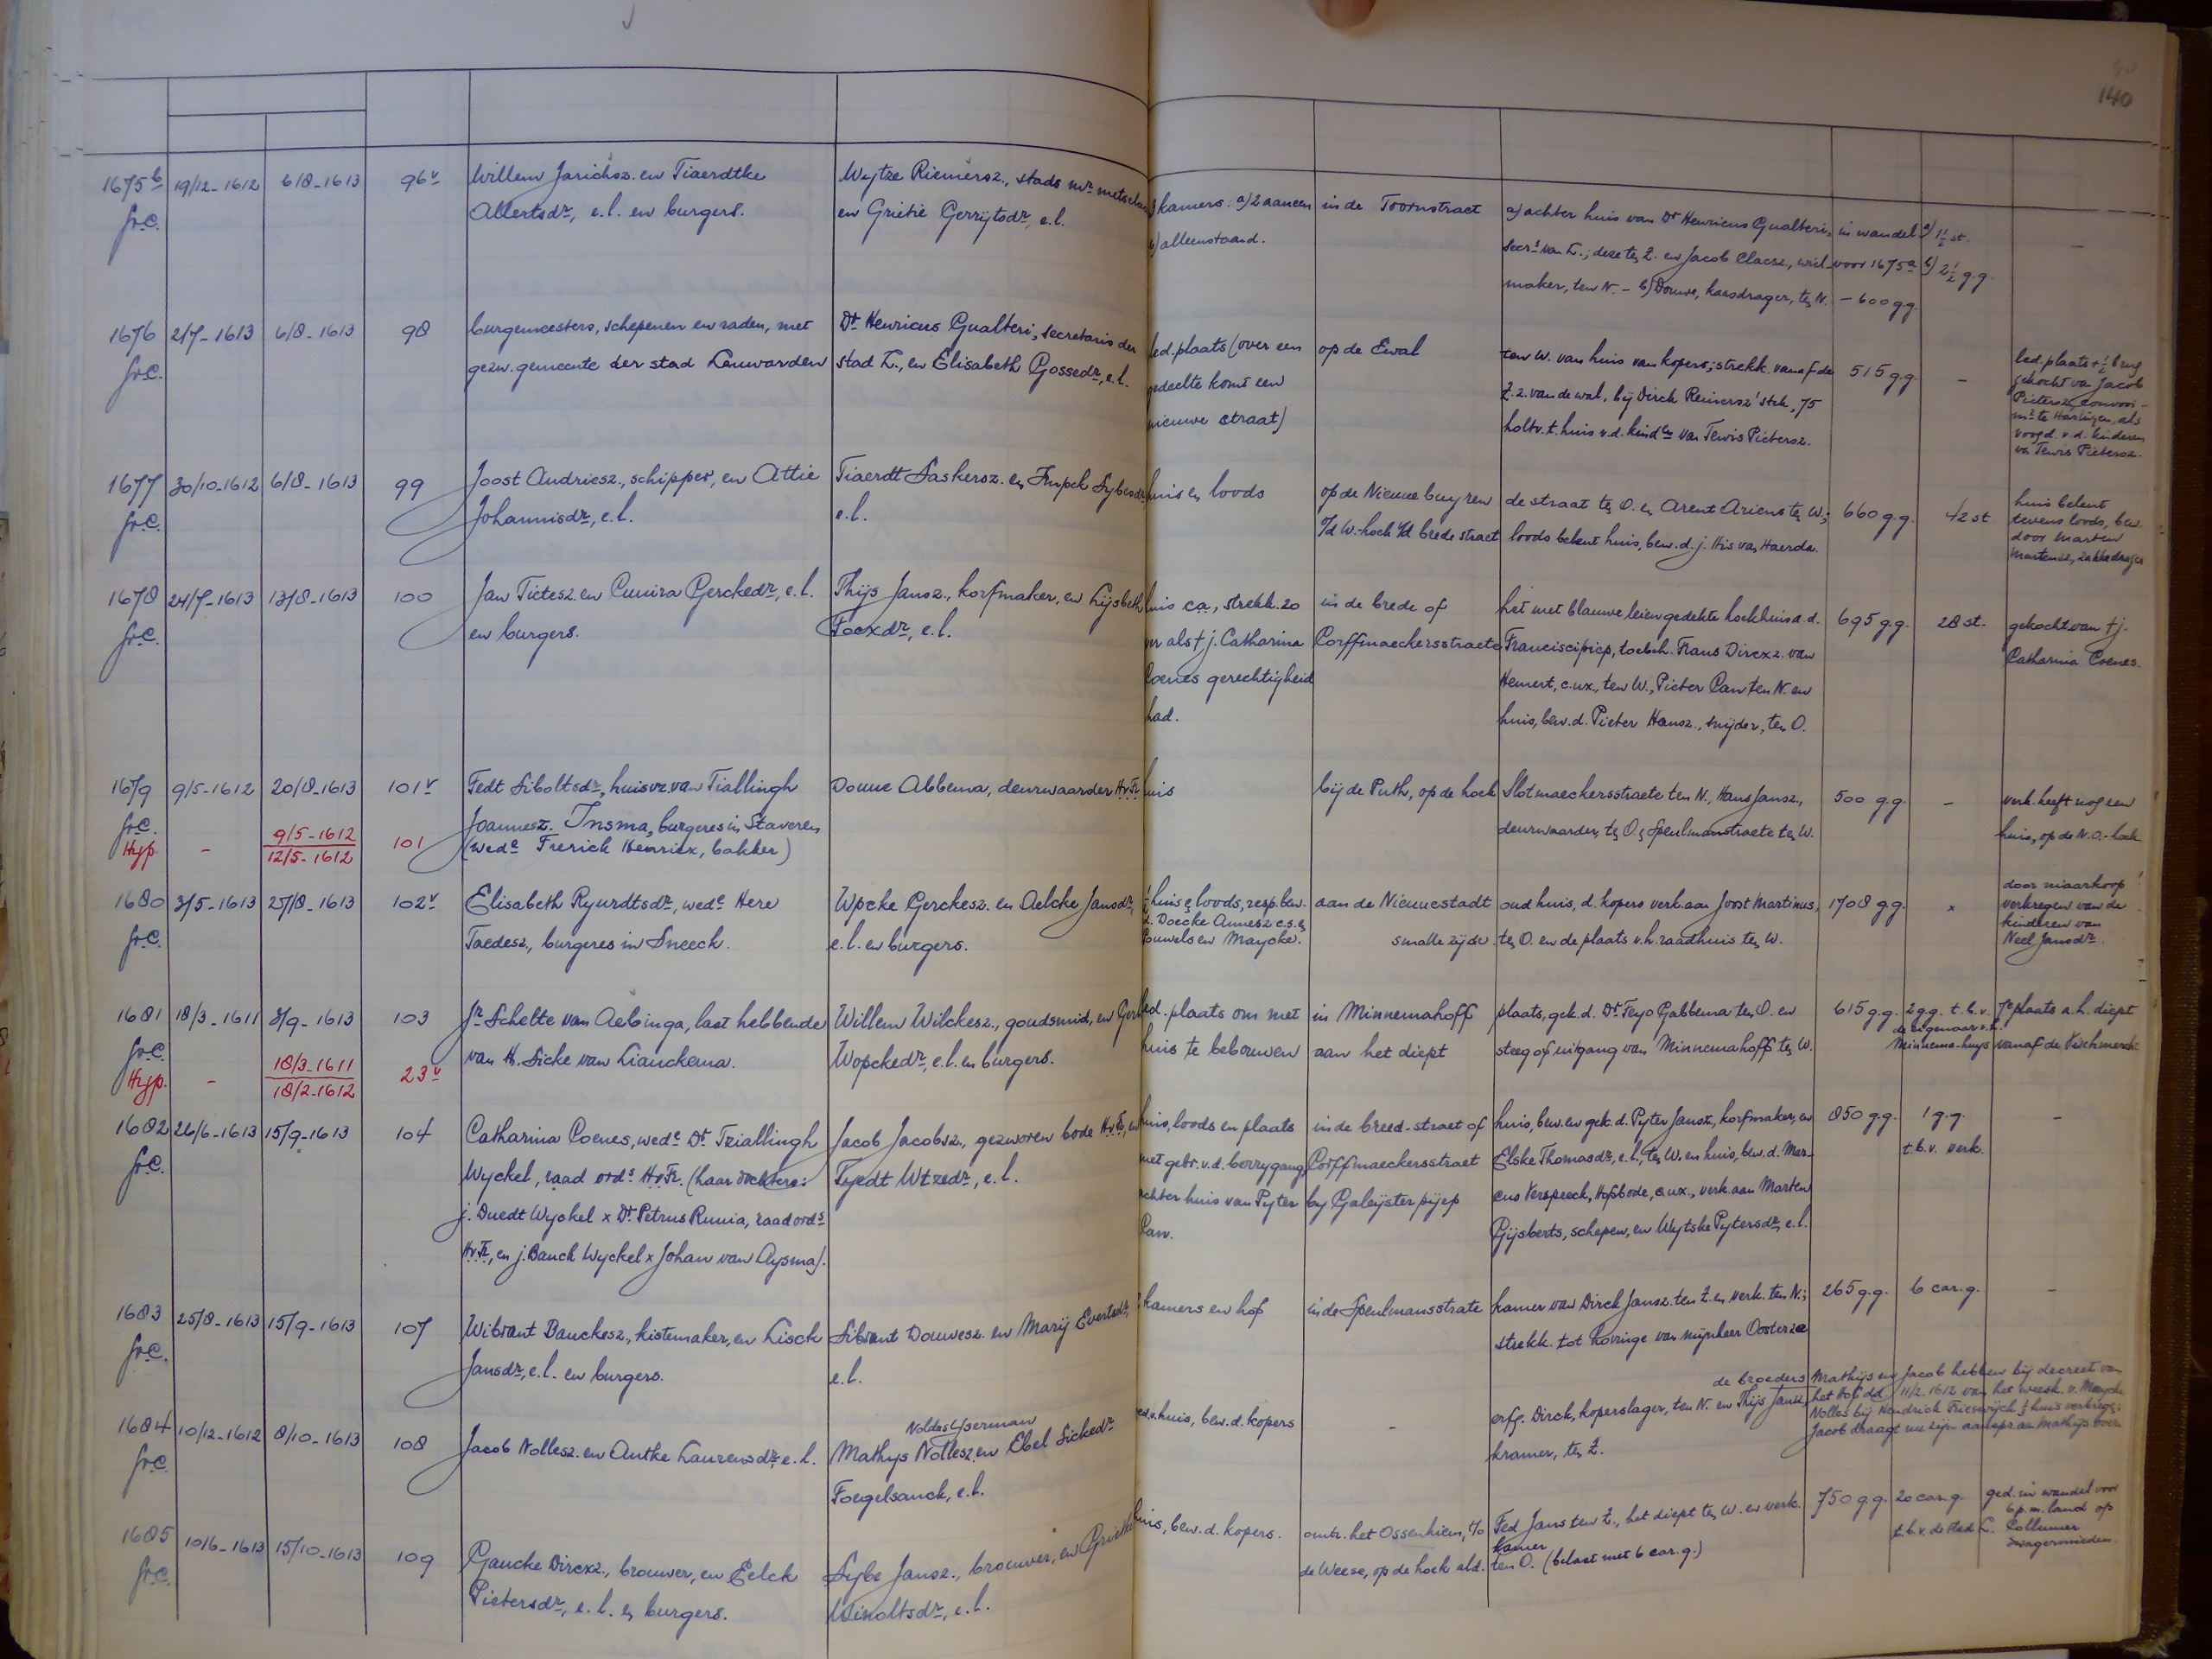 140
1675b 19/12-1612 6/8-1613 96v Willem Jarichsz. en Tiaerdtke Wytze Riemersz., stads mr metselaar 3 kamers: a) 2 aaneen in de Toornstraet a) achter huis van Dr Henricus Gualteri, in wandel a) 1½ st. –
fr.c. Allertsdr, e.l. en burgers. en Grietie Gerrijtsdr, e.l. b) alleenstaand. secrs van L.; deze ten Z. en Jacob Claesz., wiel- voor 1675a b) 2½ g.g.
maker, ten N. – b) Douwe, kaesdrager, ten N. – 600 gg
1676 2/7-1613 6/8-1613 98 burgemeesters, schepenen en raden, met Dr Henricus Gualteri, secretaris der led. plaats (over een op de Ewal ten W. van huis van kopers; strekk. vanaf de 515 g.g. – led. plaats + ½ brug
fr.c. gezw. gemeente der stad Leeuwarden stad L., en Elisabeth Gossedr, e.l. gedeelte komt een Z.z. van de wal, bij Dirck Reinersz' stek, 75 gekocht van Jacob
nieuwe straat) holtv. t. huis v.d. kinden van Tewis Pietersz. Pietersz, convooi-
mr te Harlingen, als
voogd. v.d. kinderen
van Tewis Pietersz.
1677 30/10-1612 6/8-1613 99 Joost Andriesz., schipper, en Attie Tiaerdt Saskersz. en Sybesdr, huis en loods op de Nieuwe buyren de straat ten O. en Arent Ariens ten W.; 660 g.g. 42 st. huis belent
fr.c. Johannisdr, e.l. e.l. o/d W.-hoek v/d brede straet loods belent huis, bew. d. j. His van Haerda. tevens loods, bew.
door Marten
Martensz, zakkedrager
1678 24/7-1613 13/8-1613 100 Jan Tietesz. en Cunira Gerckedr, e.l. Thijs Jansz., korfmaker, en Lijsbeth huis c.a., strekk. zo in de brede of het met blauwe leien gedekte hoekhuis a.d. 695 g.g. 28 st. gekocht van † j.
fr.c. en burgers. Foexdr, e.l. ver als † j. Catharina Corffmaeckersstraete Franciscipiep, toebeh. Frans Dircxz. van Catharina Coenes.
Coenes gerechtigheid Hemert, c.ux., ten W., Pieter Can ten N. en
had. huis, bew. d. Pieter Hansz., snijder, ten O.
1679 9/5-1612 20/8-1613 101v Fedt Siboltsdr, huisvr. van Tiallingh Douue Abbema, deurwaarder HvFr huis bij de Puth, op de hoek Slotmaeckersstraete ten N., Hans Jansz., 500 g.g. – verk. heeft nog een
fr.c. Joannesz. Insma, burgeres in Staveren deurwaarder, ten O., Speulmanstraete ten W. huis, op de N.O.-hoek
Hyp. – 9/5-1612 101 (wede Frerick Henricx, bakker)
12/5-1612
1680 3/5-1613 27/8-1613 102v Elisabeth Ryurdtsdr, wede Here Wpcke Gerckesz. en Aelcke Jansdr, ½ huis & loods, resp. bew. aan de Nieuwestadt oud huis, d. kopers verk. aan Joost Martinus, 1708 g.g. x door niaarkoop
fr.c. Taedesz., burgeres in Sneeck. e.l. en burgers. d. Doecke Annesz c.s. en smalle zijde ten O. en de plaats v.h. raadhuis ten W. verkregen van de
Pouwels en Maycke. kinderen van
Neel Jansdr.
1681 18/3-1611 3/9-1613 103 Jr Schelte van Aebinga, last hebbende Willem Wilckesz., goudsmid, en led. plaats om met in Minnemahoff plaats, gek. d. Dr Feyo Gabbema ten O. en 615 g.g. 2 g.g. t.b.v. 7e plaats a.h. diept
fr.c. van H. Sicke van Liauckama. Wopckedr, e.l. en burgers. huis te bebouwen aan het diept steeg of uitgang van Minnemahoff ten W. de eigenaar v.h. vanaf de Vischmerck
Hyp. – 18/3-1611 23v Minnema-huys
18/2-1612
1682 26/6-1613 15/9-1613 104 Catharina Coenes, wede Dr Tziallingh Jacob Jacobsz., gezworen bode HvFr, en huis, loods en plaats in de breed-straet of huis, bew. en gek. d. Pyter Jansz., korfmaker, en 850 g.g. 1 g.g. –
fr.c. Wyckel, raad ords HvFr. (haar dochters: Tyedt Wtzedr, e.l. met gebr. v.d. berrygang Corffmaeckersstraet Elske Thomasdr, e.l., ten W. en huis, bew. d. Mar- t.b.v. verk.
j. Duedt Wyckel x Dr Petrus Runia, raad ords achter huis van Pyter by Galeijster pijep cus Verspeeck, Hofsbode, c.ux., verk. aan Marten
HvFr, en j. Bauck Wyckel x Johan van Aysma). Can. Gijsberts, schepen, en Wytske Pytersdr, e.l.
1683 25/8-1613 15/9-1613 107 Wibrant Bauckesz., kistemaker, en Lisck Sibrant Douwesz. en Marij Evertsdr, kamers en hof in de Speulmansstrate kamer van Dirck Jansz. ten Z. en verk. ten N.; 265 g.g. 6 car.g. –
fr.c. Jansdr, e.l. en burgers. e.l. strekk. tot hovinge van mijnheer Oosterzee
1684 10/12-1612 8/10-1613 108 Jacob Nollesz. en Antke Laurensdr, e.l. Mathys Nollesz. en Ebel Sickedr ged. v. huis, bew. d. kopers – erfg. Dirck, koperslager, ten N. en Thijs Jansz, de broeders Mathijs en Jacob hebben bij decreet van
fr.c. Noldes Yserman Foegelsanck, e.l. kramer, ten Z. het Hof dd. 11/2.1612 van het weesk. v. Maycke
Nolles bij Hendrick Friesewijck ½ huis verkregen;
Jacob draagt nu zijn aandeel aan Mathijs over
1685 10/6-1613 15/10-1613 109 Gaucke Dircxz., brouwer, en Eelck Sybe Jansz., brouwer, en Grietke huis, bew. d. kopers. omtr. het Ossenhiem, t/o Fed Jans ten Z., het diept ten W. en verk. 750 g.g. 20 car.g. ged. in wandel voor
fr.c. Pietersdr, e.l. en burgers. Winoltsdr, e.l. de Weese, op de hoek ald. kamer ten O. (belast met 6 car.g.) t.b.v. de stad L. 6 p.m. land op
Collumer
zwagermieden.